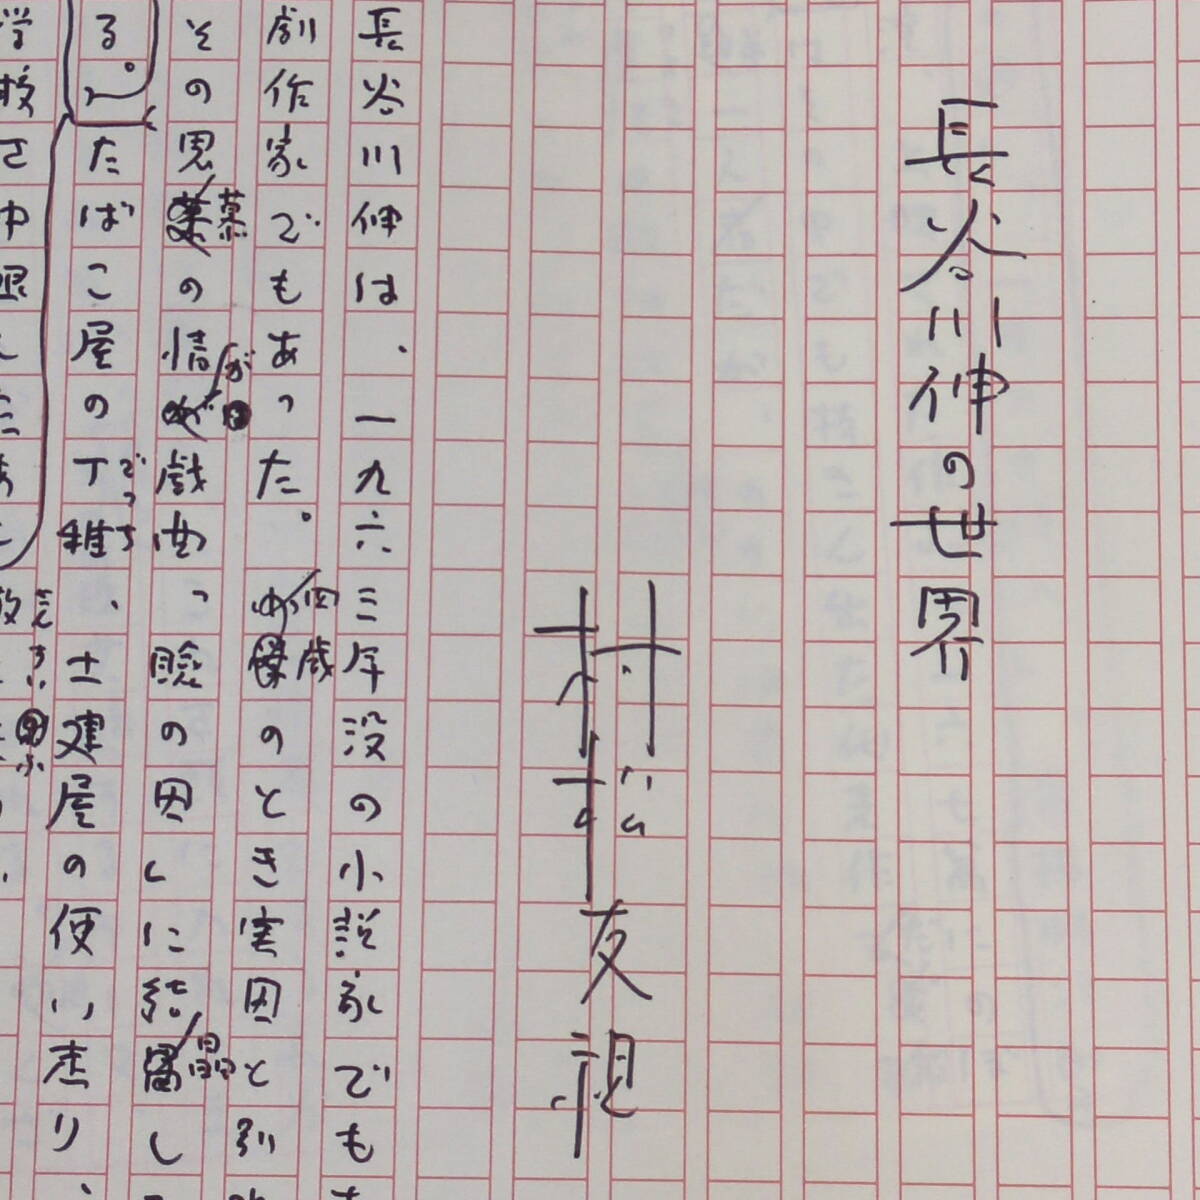 長谷川伸の世界
村松友視
長谷川伸は、一九六三年没の小説家でも
劇作家でもあった。四歳のとき実母と別
その思慕の情が戯曲「瞼の母」に結晶し
る。たばこ屋の丁稚でっち、土建屋の使い走り、